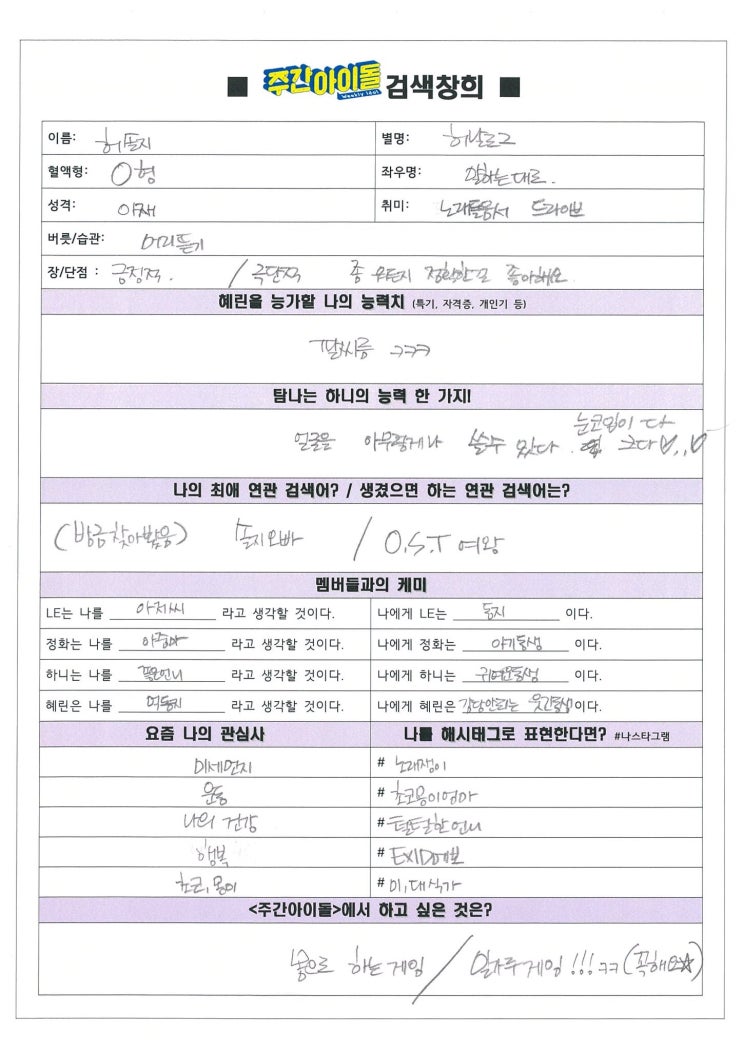 ■ 주간아이돌 Weekly Idol 검색창희 ■
이름: 허솔지 별명: 허날로그
혈액형: O형 좌우명: 말하는대로.
성격: 아재 취미: 노래들으며 드라이브
버릇/습관: 머리뜯기
장/단점 : 긍정적. / 극단적 좋 우든지 정확한걸 좋아해요
혜린을 능가할 나의 능력치 (특기, 자격증, 개인기 등)
팔씨름 ㅋㅋㅋ
탐나는 하니의 능력 한 가지!
얼굴을 아무렇게나 쓸수 있다. 눈코입이 다 크다♡..♡
나의 최애 연관 검색어? / 생겼으면 하는 연관 검색어는?
(방금찾아봤음) 솔지오빠 / O.S.T 여왕
멤버들과의 케미
LE는 나를 아저씨 라고 생각할 것이다. 나에게 LE는 동지 이다.
정화는 나를 아줌마 라고 생각할 것이다. 나에게 정화는 아기동생 이다.
하니는 나를 언니 라고 생각할 것이다. 나에게 하니는 귀여운동생 이다.
혜린은 나를 라고 생각할 것이다. 나에게 혜린은 감당안되는 웃긴동생 이다.
요즘 나의 관심사 나를 해시태그로 표현한다면? #나스타그램
미세먼지 # 노래쟁이
운동 # 초코몽이엄마
나의 건강 # 털털한언니
행복 # EXID메보
초코, 몽이 # 미,대식가
<주간아이돌>에서 하고 싶은 것은?
몸으로 하는게임 / 알까루게임!!! ㅋㅋ (꼭해요☆)